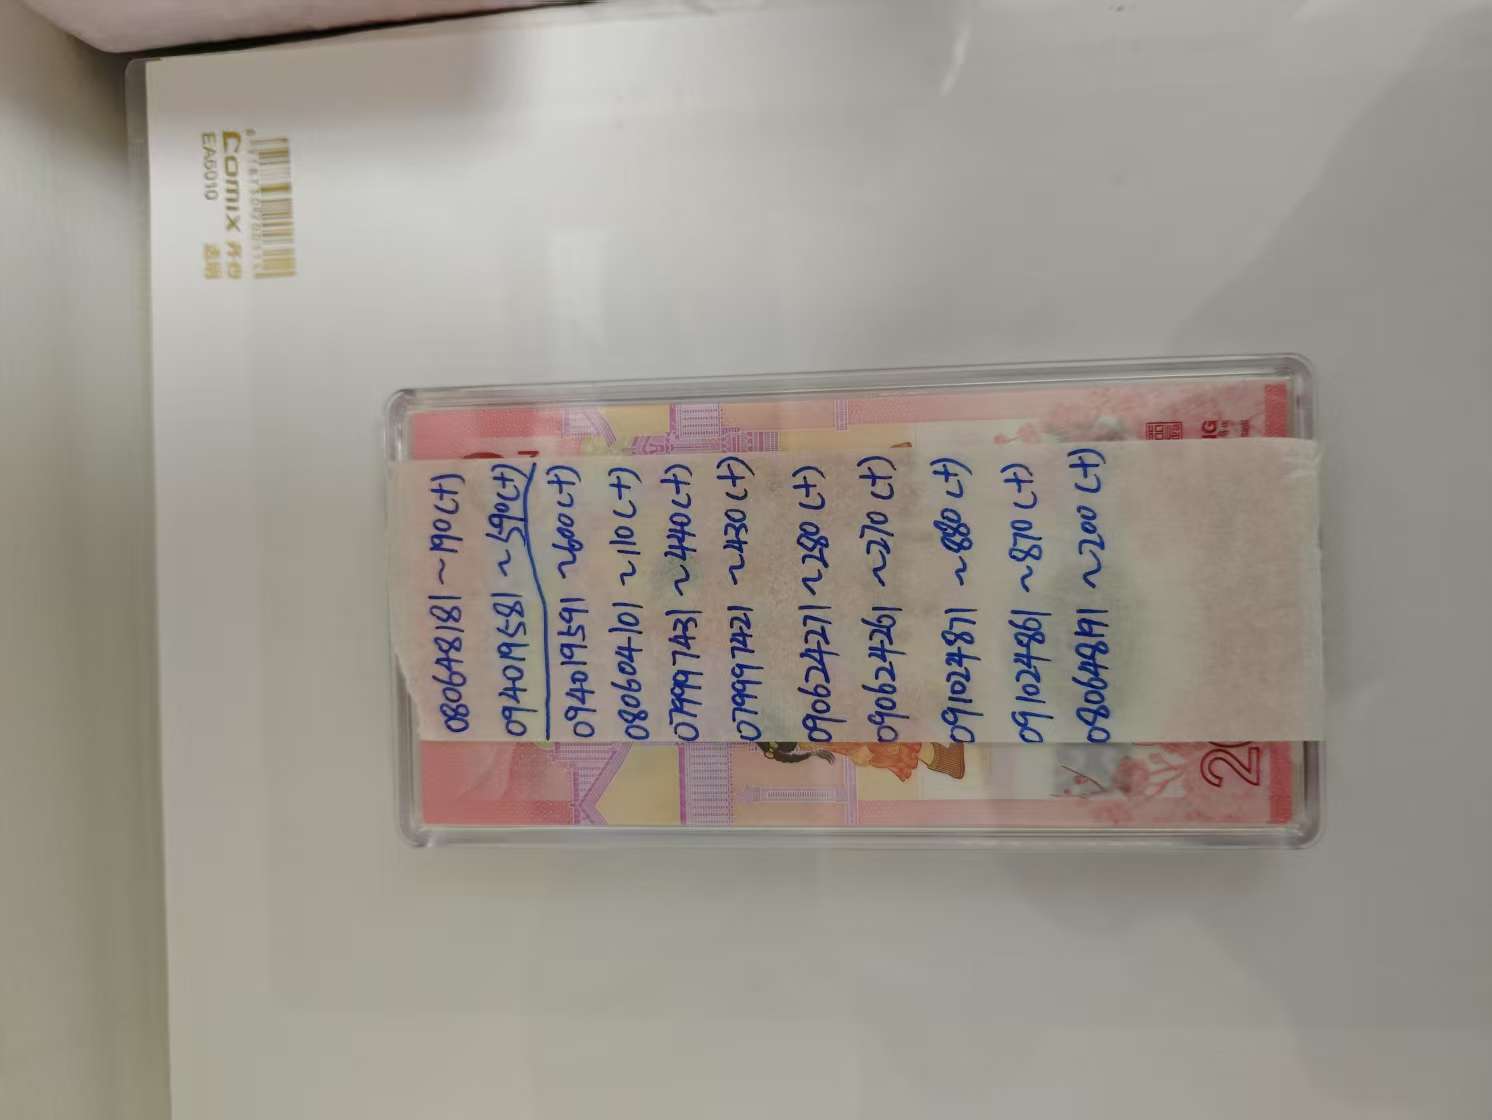 Comix 齐心
EA6010 透明
080648181~190(+)
094019581~590(+)
094019591~600(+)
080604101~110(+)
079997431~440(+)
079997421~430(+)
090624271~280(+)
090624261~270(+)
091024871~880(+)
091024861~870(+)
080648191~200(+)